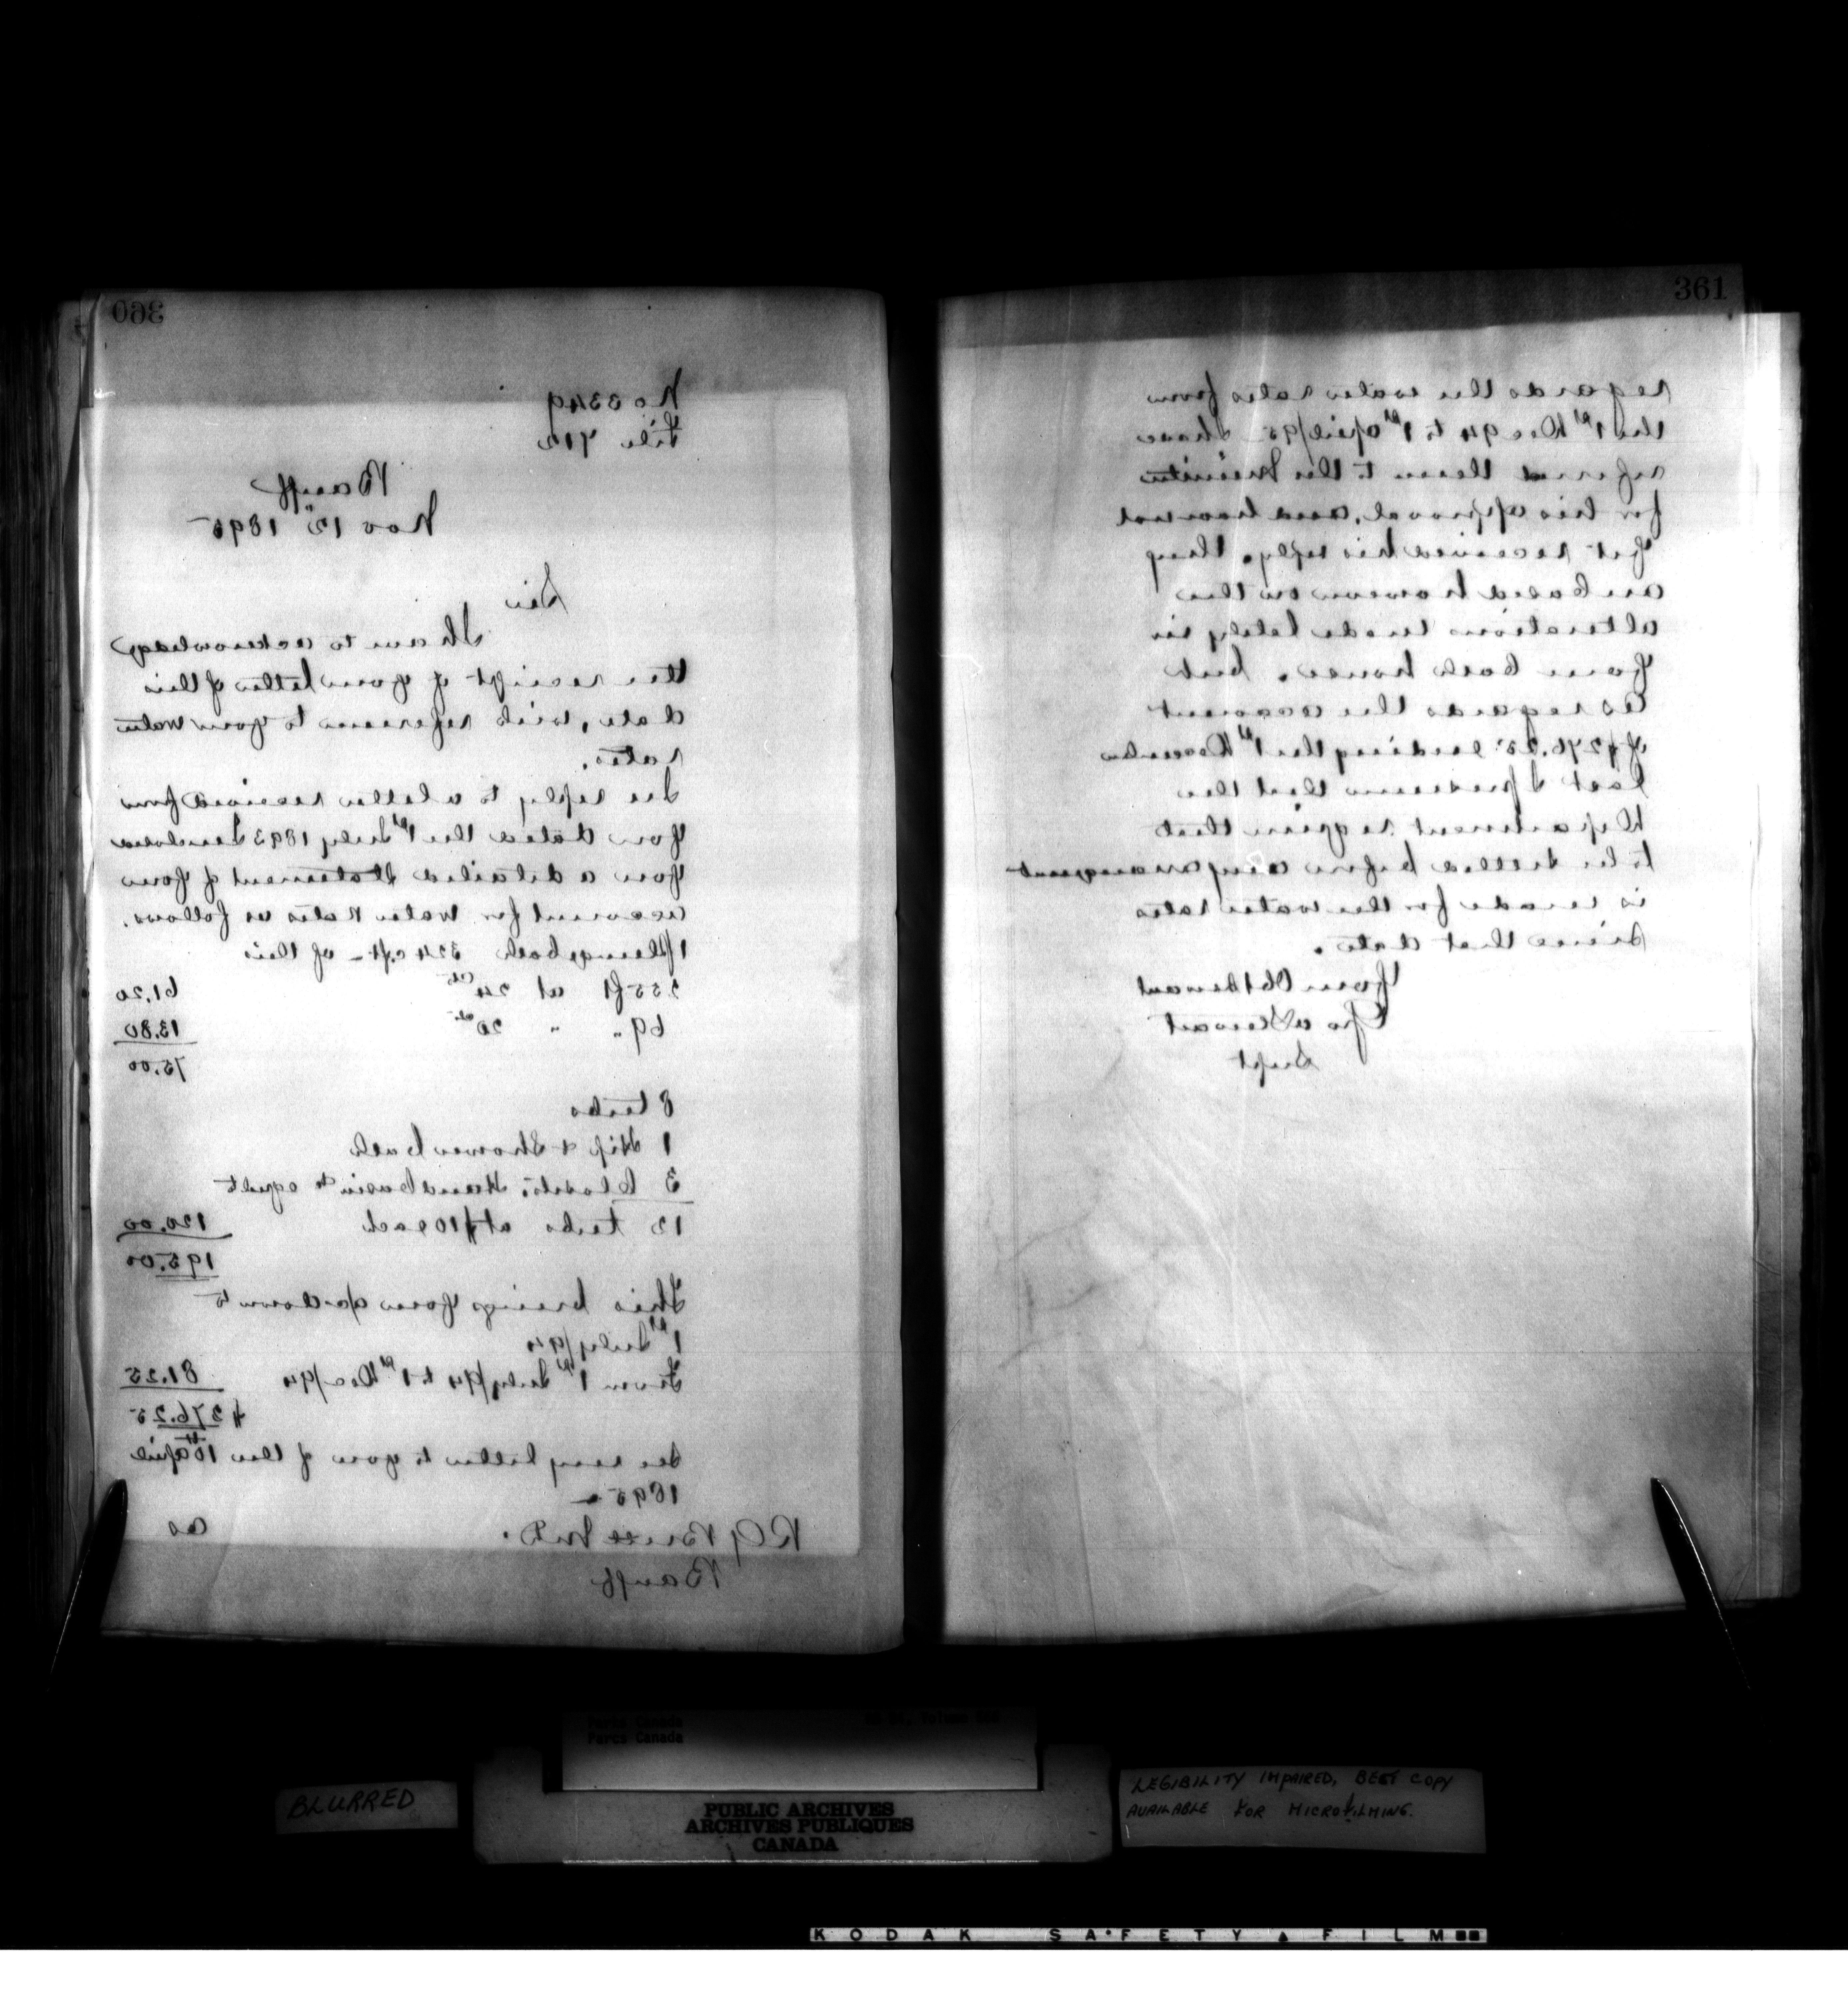 360
No 3349
File 712
Banff
Nov 12" 1895
Sir
I have to acknowledge
the receipt of your letter of this
date, with reference to your water
rates.
In reply to a letter received from
you dated the 1st July 1893 I enclosed
you a detailed statement of your
account for water rates as follows.
1 Plunge bath 324 c.ft - of this
255 ft at 24 cts 61.20
69 " " 20 cts 13.80
75.00
8 tubs
1 Hip & Shower bath
3 Closets. Hand basin to equal
12 tubs at $10 each 120.00
195.00
This brings your a/c down to
1st July/94
From 1st July/94 to 1st Dec/94 81.25
$276.25
In my letter to you of the 10th April
1895 -
R G Brett M.D. as
Banff
361
regards the water rates from
the 1st Dec 94 to 1st April/95 I have
referred them to the Minister
for his approval, and have not
yet received his reply. They
are based however on the
alterations made lately in
your bath house. but
as regards the account
of $276.25 ending the 1st December
last I presume that the
Department require that
to be settled before any arrangement
is made for the water rates
since that date.
Your Obt Servant
Geo A Stewart
Supt
Parks Canada
Parcs Canada
BLURRED
PUBLIC ARCHIVES
ARCHIVES PUBLIQUES
CANADA
LEGIBILITY IMPAIRED, BEST COPY
AVAILABLE FOR MICROFILMING.
KODAK SAFETY FILM